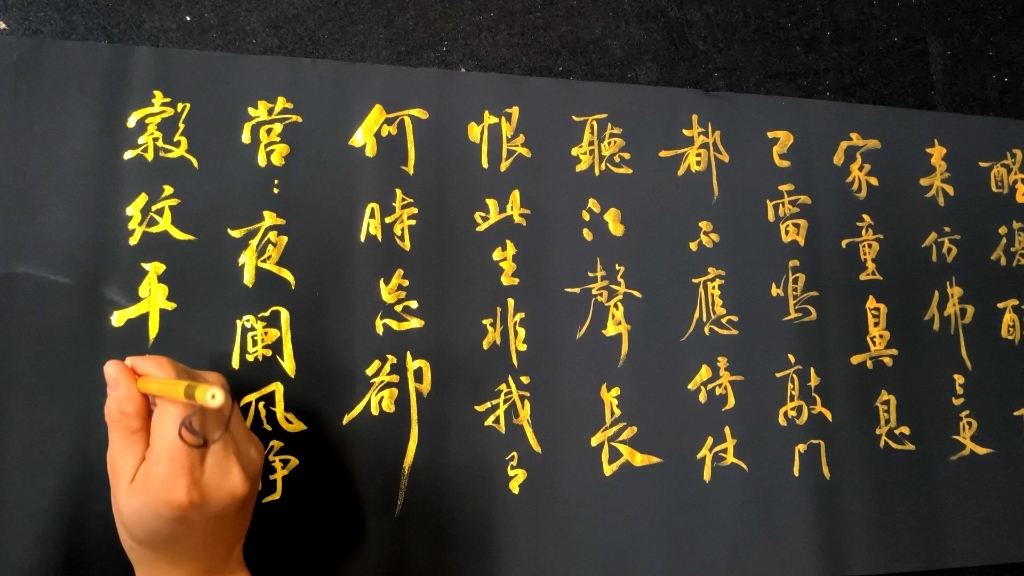 醒復醉
来仿佛三更
家童鼻息
已雷鳴敲門
都不應倚仗
聽江聲長
恨此生非我有
何時忘卻
營:夜闌風静
縠纹平